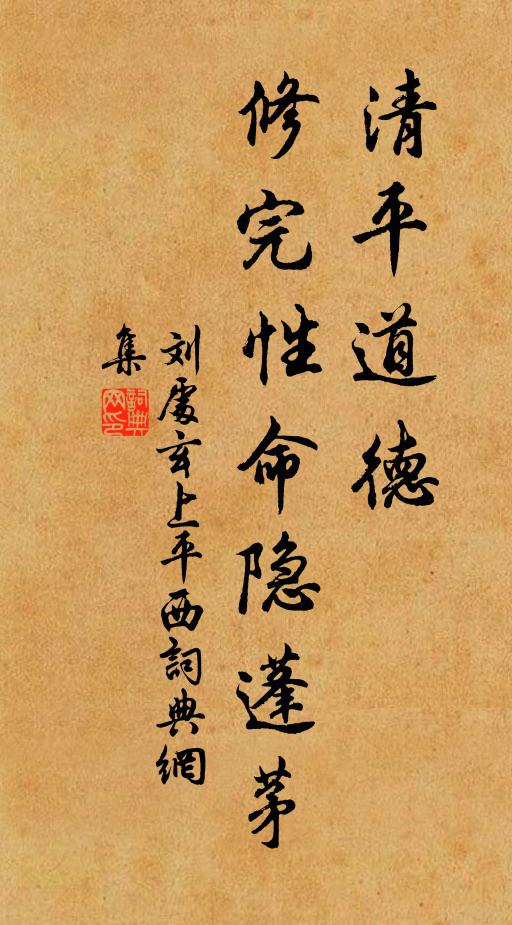 清平道德
修完性命隐蓬茅
刘處玄上平西詞典網
集
詞典网印